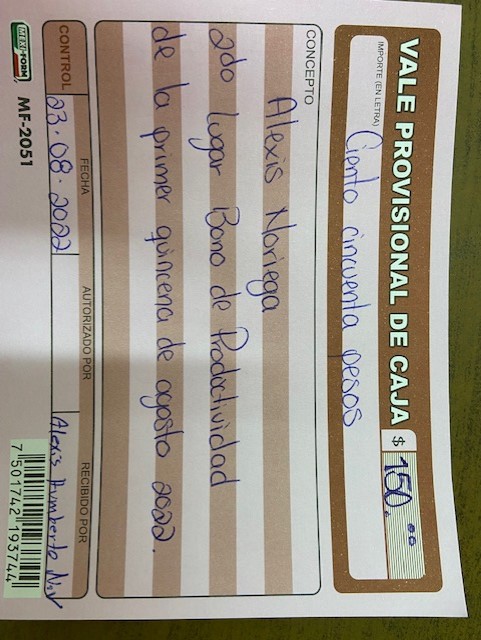 VALE PROVISIONAL DE CAJA $ 150.00
IMPORTE (EN LETRA)
Ciento cincuenta pesos
CONCEPTO
Alexis Noriega
2do lugar Bono de Productividad
de la primer quincena de agosto 2022.
CONTROL FECHA AUTORIZADO POR RECIBIDO POR
23.08.2022 Alexis Humberto
MEXI-FORM MF-2051
7 501742 193744